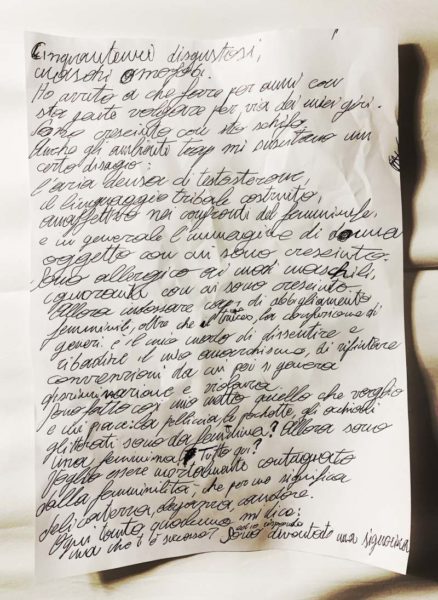 Cinquantenni disgustosi,
maschi omofobi.
Ho avuto a che fare per anni con
sta gente volgare per via dei miei giri.
Sono cresciuto con sto schifo
Anche gli ambienti trap mi suscitano un
certo disagio:
l'aria densa di testosterone,
il linguaggio tribale costruito,
anaffettivo nei confronti del femminile,
e in generale l'immagine di donna
oggetto con cui sono cresciuto.
Sono allergico ai modi maschili,
ignoranti con cui sono cresciuto
Allora indossare capi di abbigliamento
femminile, oltre che il trucco, la confusione di
generi è il mio modo di dissentire e
ribadire il mio anarchismo, di rifiutare
convenzioni da cui poi si genera
discriminazione e violenza
Sono fatto così mi metto quello che voglio
e mi piace: la pelliccia, le pochette, gli occhiali
glitterati sono da femmina? Allora sono
una femmina. Tutto qui?
Voglio essere mortalmente contagiato
dalla femminilità, che per me significa
delicatezza, eleganza, candore.
Ogni tanto qualcuno mi dice:
ma che ti è successo? ed io rispondo sono diventato una signorina